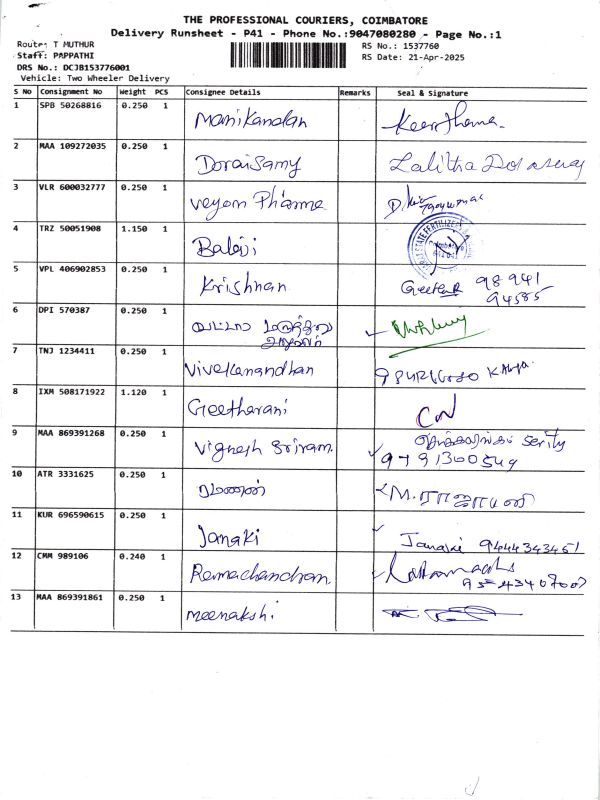 THE PROFESSIONAL COURIERS, COIMBATORE
Delivery Runsheet - P41 - Phone No.:9047080280 - Page No.:1
Route: T MUTHUR
RS No.: 1537760
Staff: PAPPATHI
RS Date: 21-Apr-2025
DRS No.: DC3B153776001
Vehicle: Two Wheeler Delivery
S No Consignment No Weight PCS Consignee Details Remarks Seal & Signature
1 SPB 50268816 0.250 1 Manikandan
2 MAA 109272035 0.250 1 Doraisamy Lalitha
3 VLR 600032777 0.250 1 veyom Pharma
4 TRZ 50051908 1.150 1 Balaji
5 VPL 406902853 0.250 1 Krishnan 98941
94585
6 DPI 570387 0.250 1
7 TNJ 1234411 0.250 1 Vivekanandhan
8 IXM 508171922 1.120 1 Geetharani
9 MAA 869391268 0.250 1 Vignesh Sriram.
9791300549
10 ATR 3331625 0.250 1 ரமணன் M.ராஜாமணி
11 KUR 696590615 0.250 1 Janaki Janaki 9444343451
12 CMM 989106 0.240 1 Ramachandran.
13 MAA 869391861 0.250 1 meenakshi